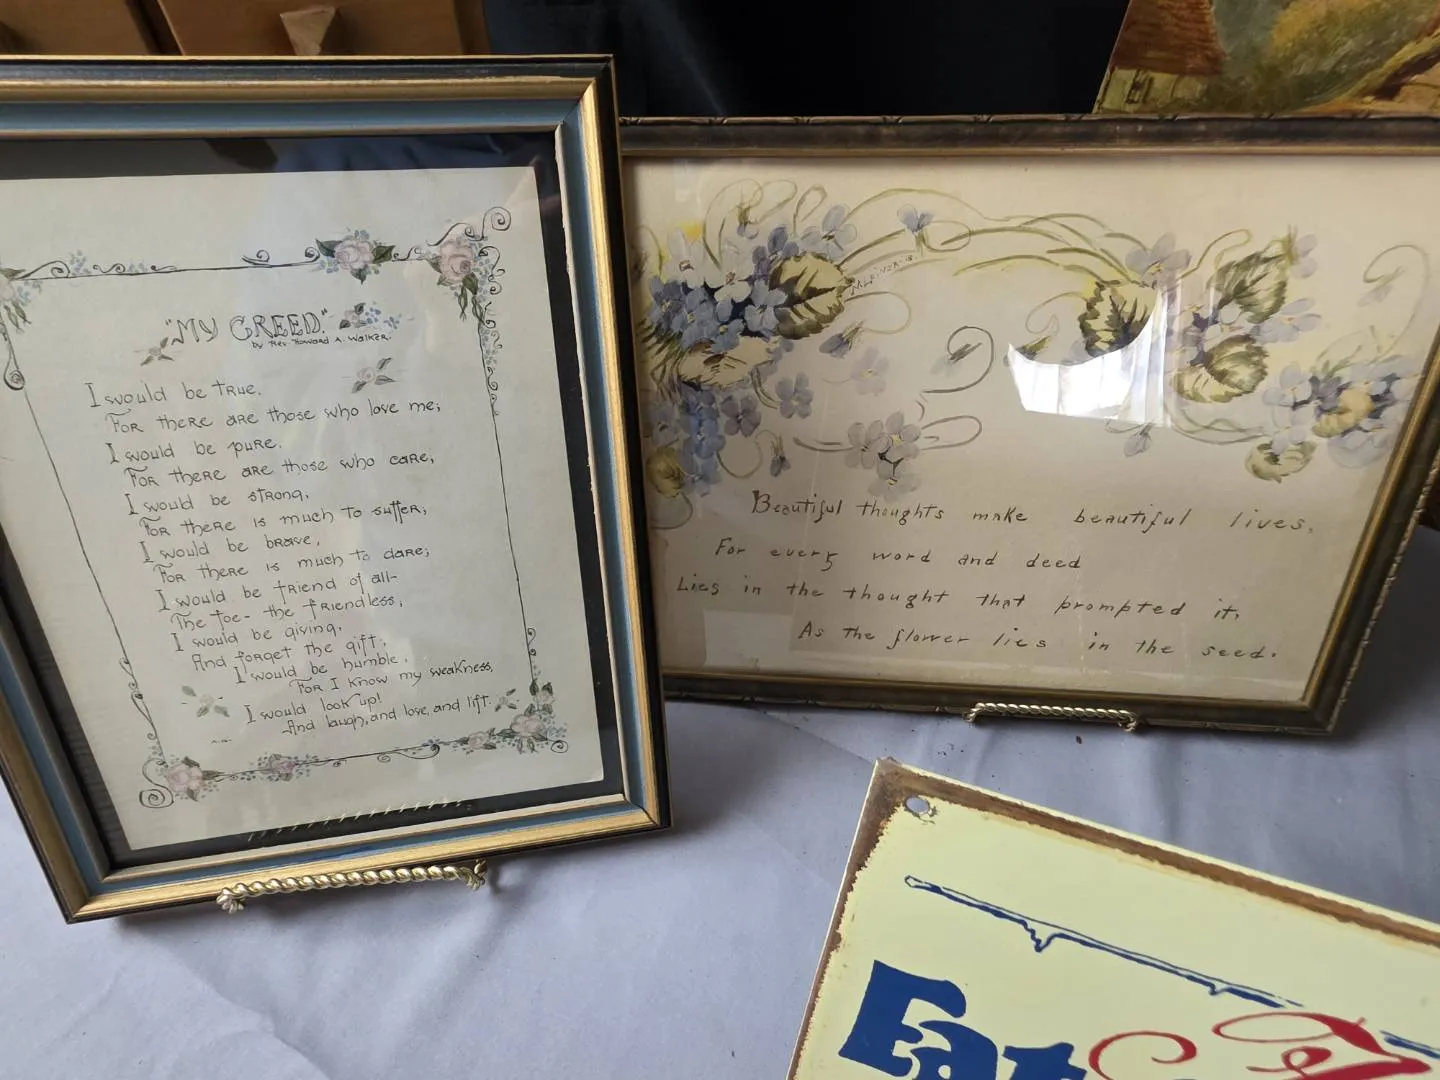 "MY CREED."
by Rev. Howard A. Walker.
I would be true,
For there are those who love me;
I would be pure,
For there are those who care,
I would be strong,
For there is much to suffer;
I would be brave,
For there is much to dare;
I would be friend of all-
The foe- the friendless;
I would be giving,
And forget the gift;
I would be humble,
For I know my weakness,
I would look up!
And laugh, and love, and lift.
Beautiful thoughts make beautiful lives,
For every word and deed
Lies in the thought that prompted it,
As the flower lies in the seed.
Eat